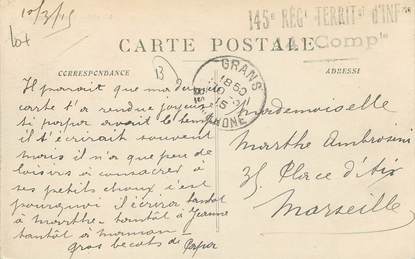 10/3/15
lot
145e REGt TERRITal D'INF
Compie
CARTE POSTALE
CORRESPONDANCE
ADRESSE
13
GRANS
1850
15
RHONE
Il parait que ma dernière
carte t'a rendue joyeuse
si papa avait le temps
il t'écrirait souvent
mais il n'a que peu de
loisirs à consacrer à
ses petits choux c'est
pourquoi il écrira tantôt
à Marthe - tantôt à Jeanne
tantôt à maman -
gros becots de Papa
Mademoiselle
Marthe Ambrosini
35 Place d'Aix
Marseille